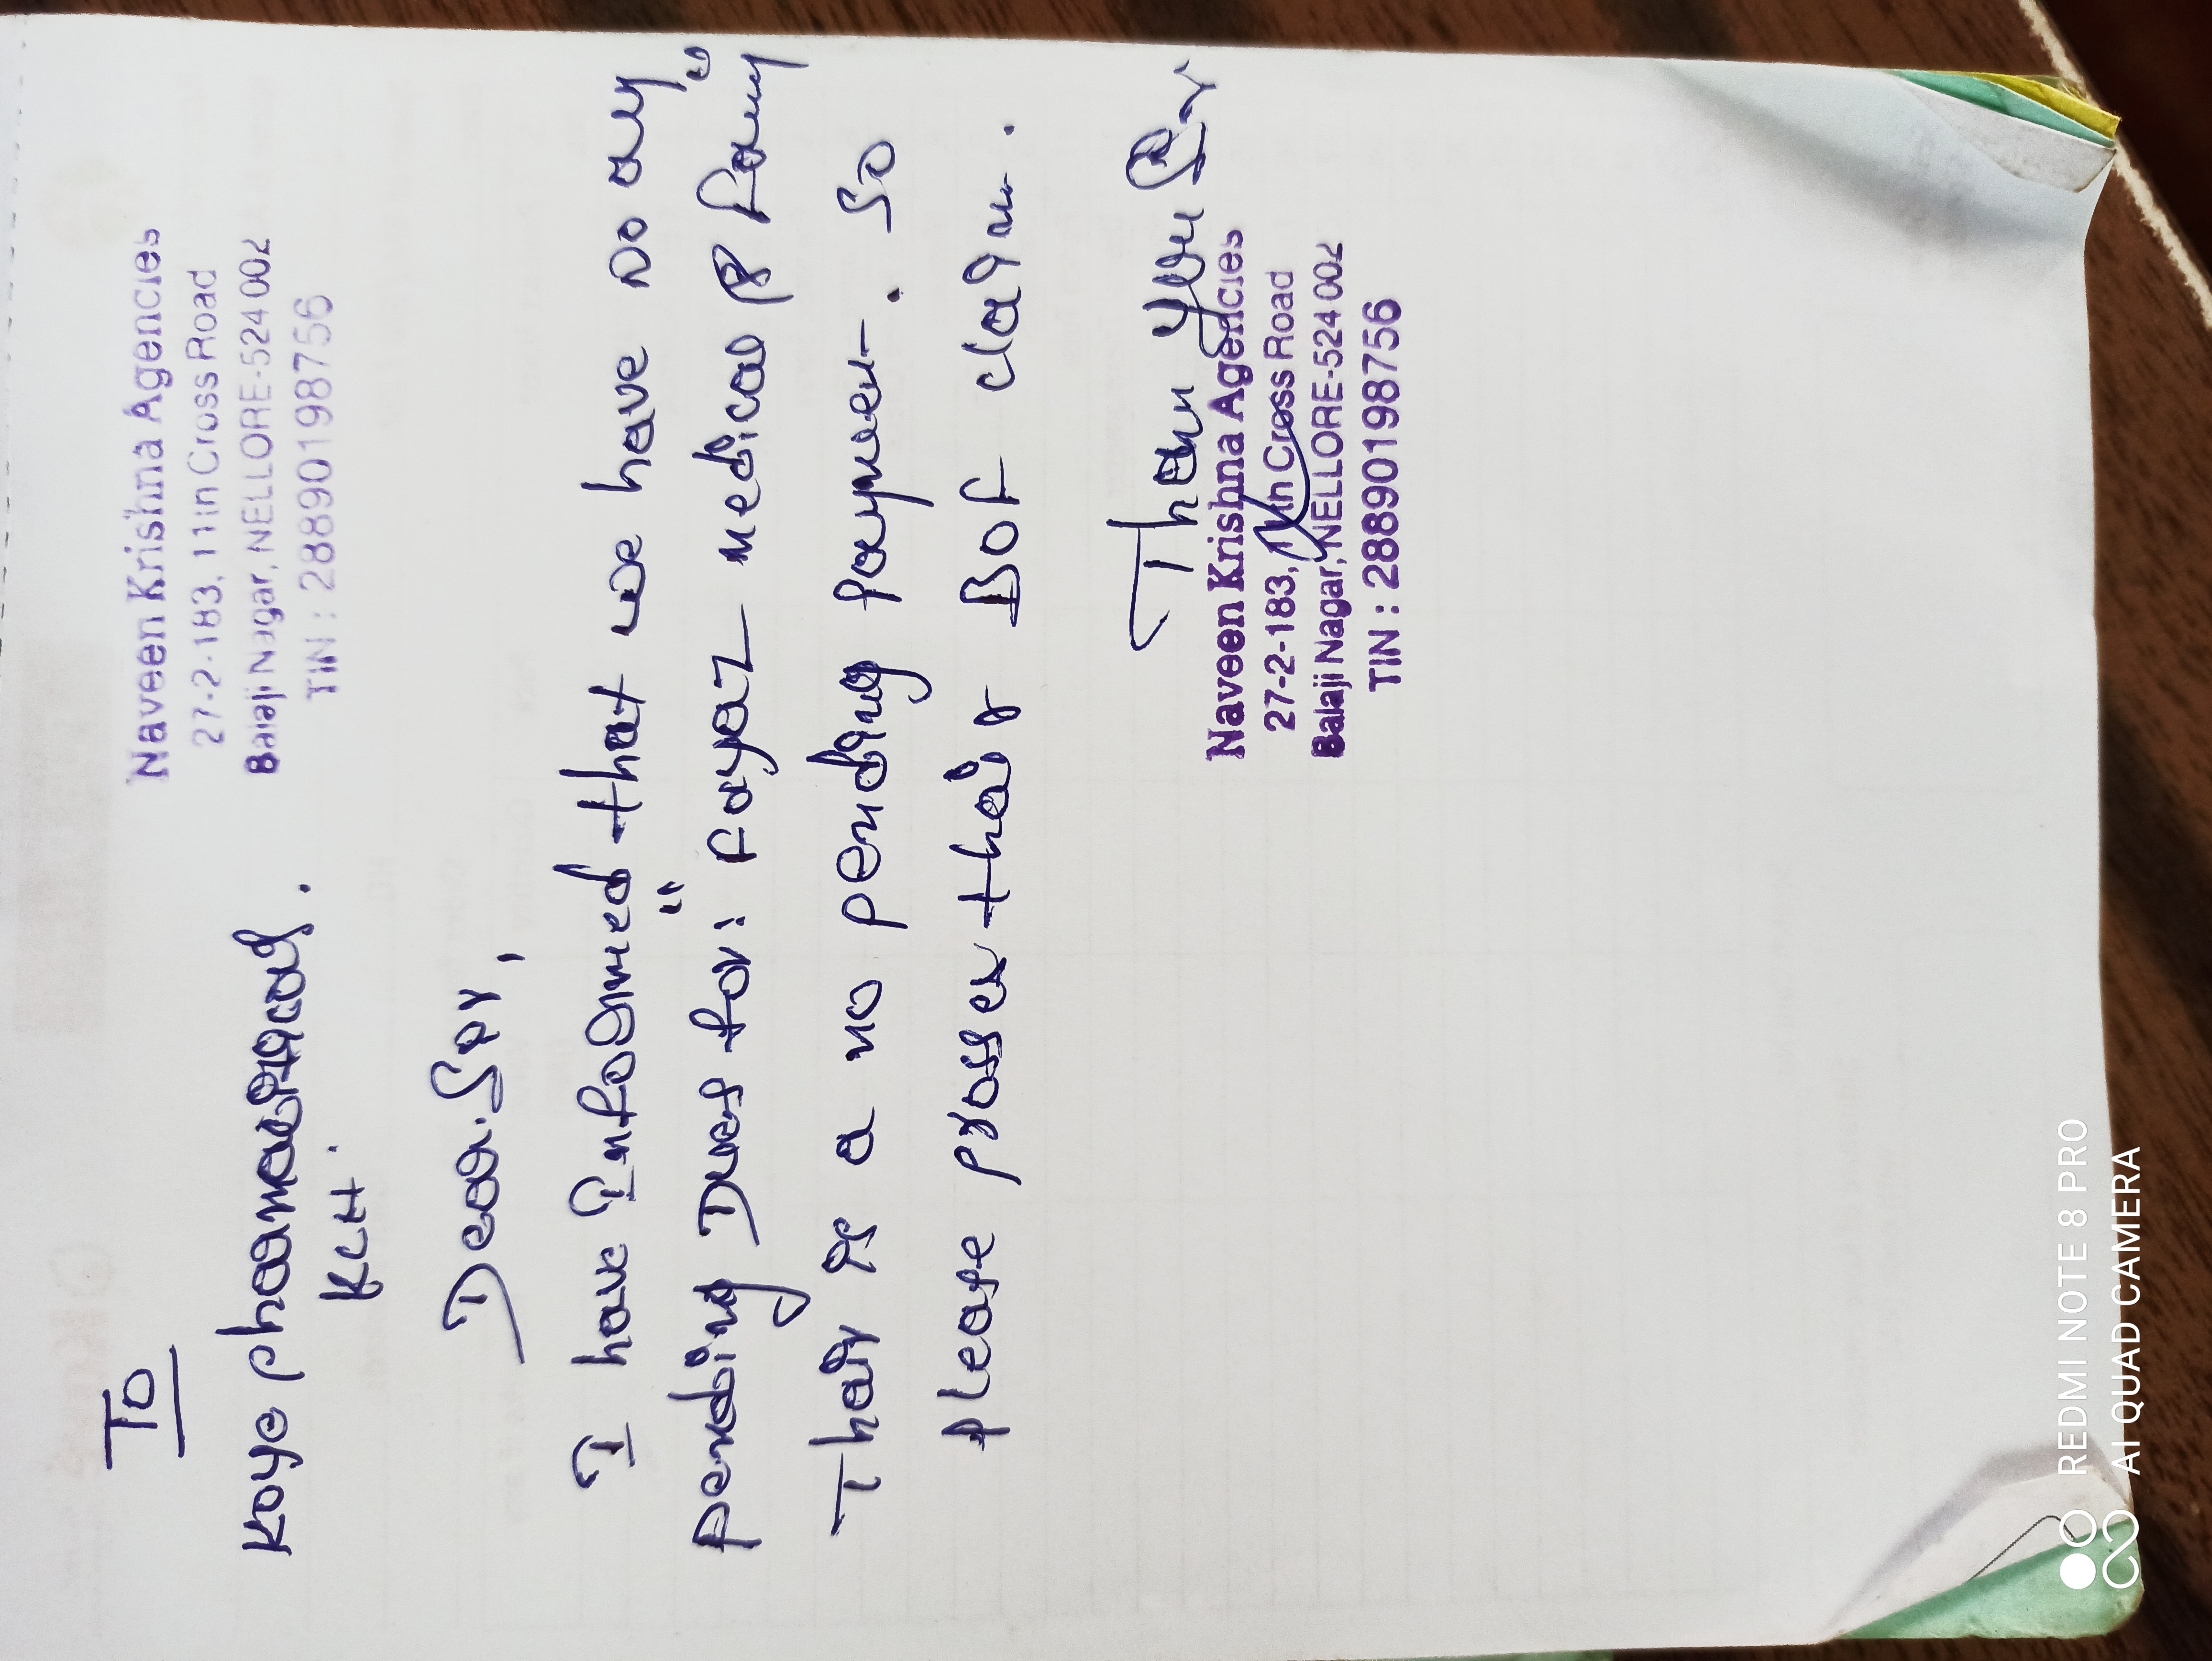 Naveen Krishna Agencies
27-2-183, 11th Cross Road
Balaji Nagar, NELLORE-524 002
TIN : 28890198756
To
Kaye pharmaceuticals.
KLT.
Dear. Sir,
I have Informed that we have no any
pending Dues for: "Fayaz medical & Fancy"
Thair is a no pending paymen-. So
please prosses thair Dot claim.
Than you Sir
Naveen Krishna Agencies
27-2-183, 11th Cross Road
Balaji Nagar, NELLORE-524 002
TIN : 28890198756
REDMI NOTE 8 PRO
AI QUAD CAMERA